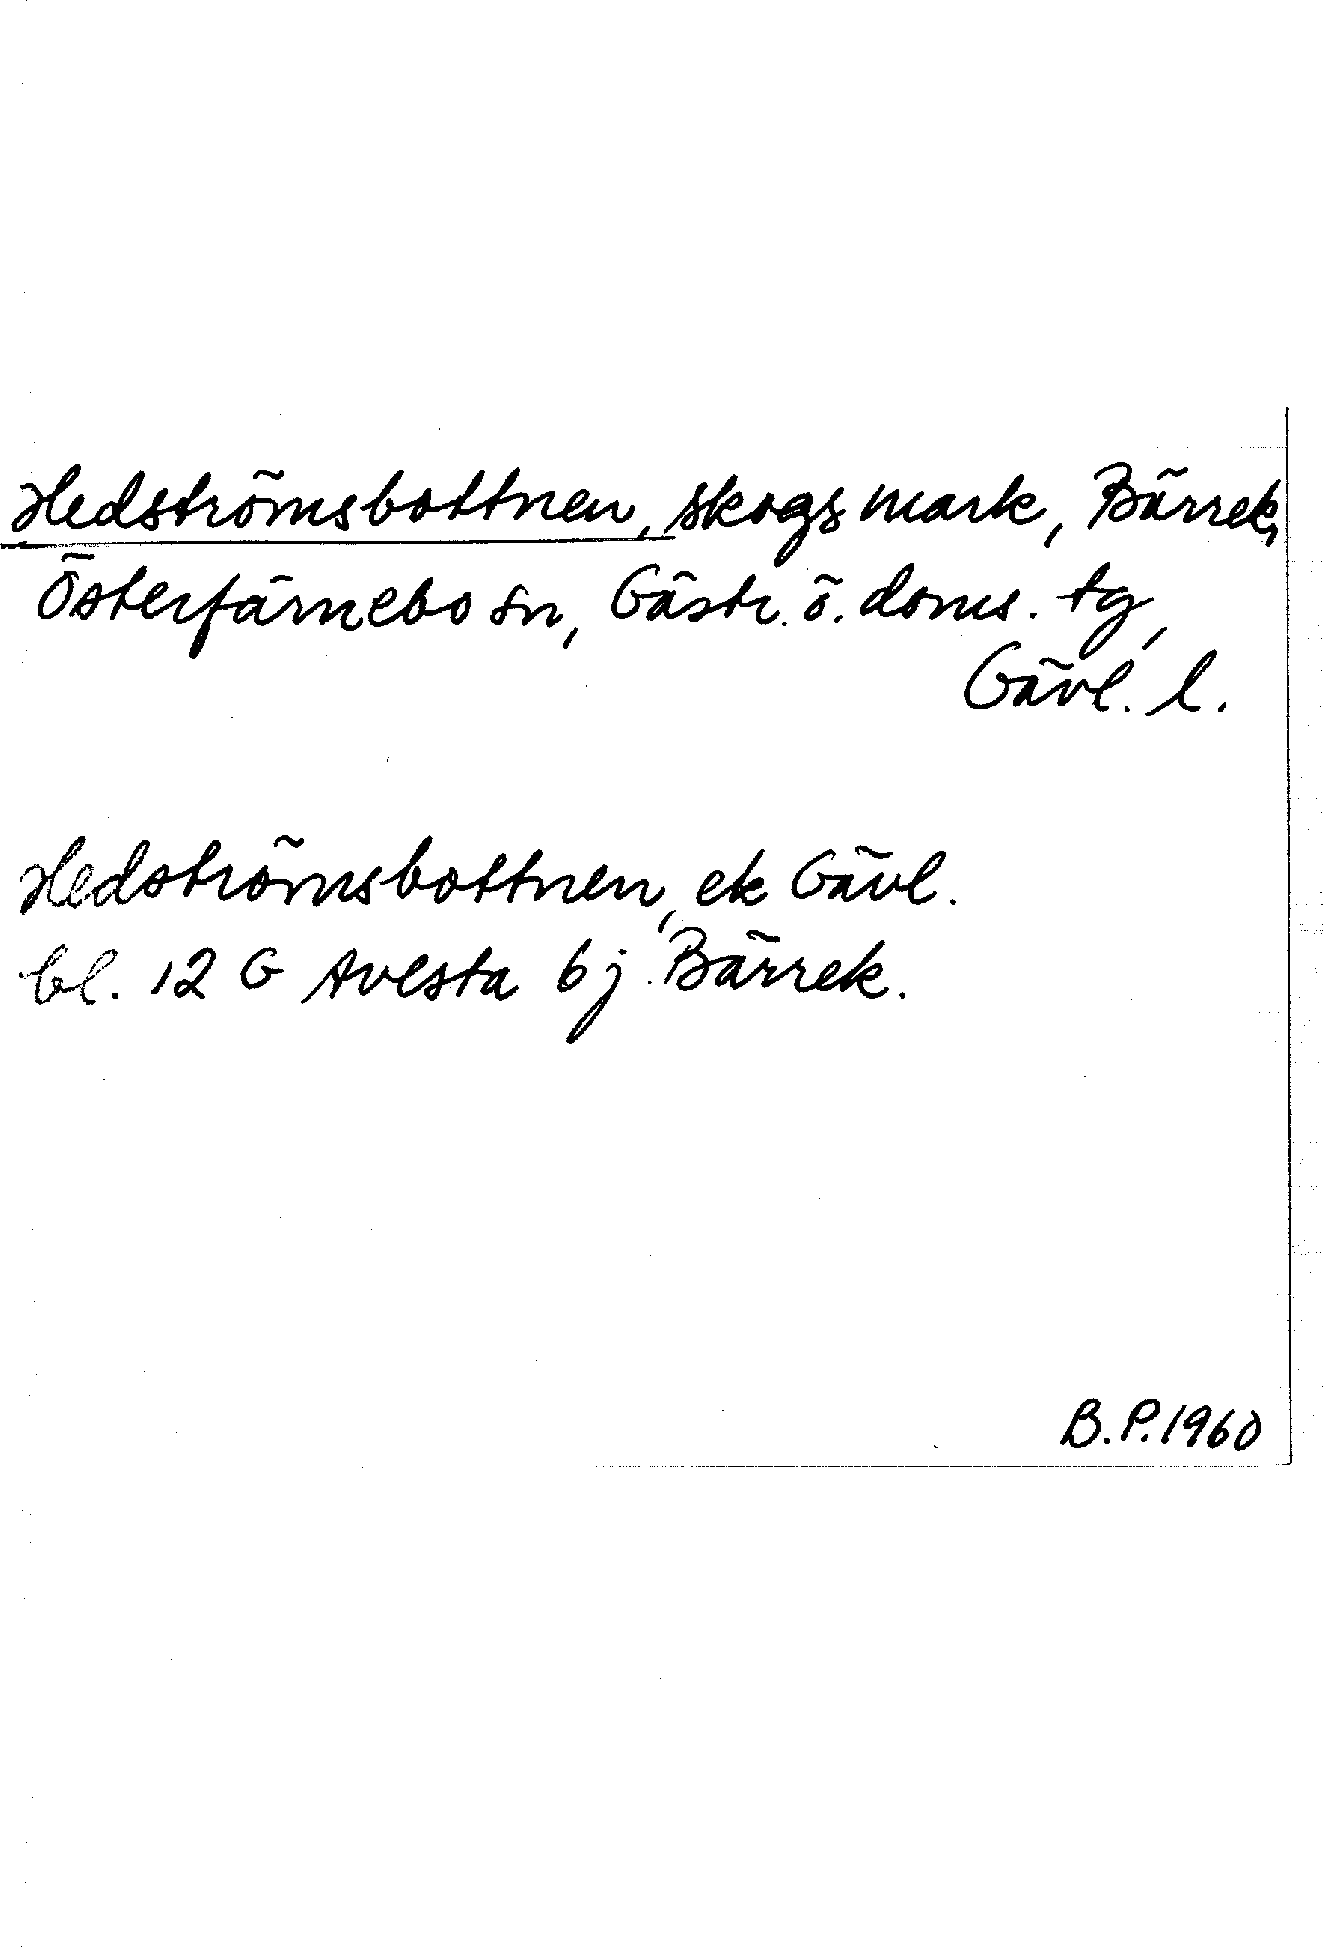 Hedströmsbottnen, skogsmark, Bärrek,
Österfärnebo sn, Gästr. ö. doms. tg,
Gävl. l.
Hedströmsbottnen, ek Gävl.
bl. 12 G Avesta 6 j Bärrek.
B. P. 1960